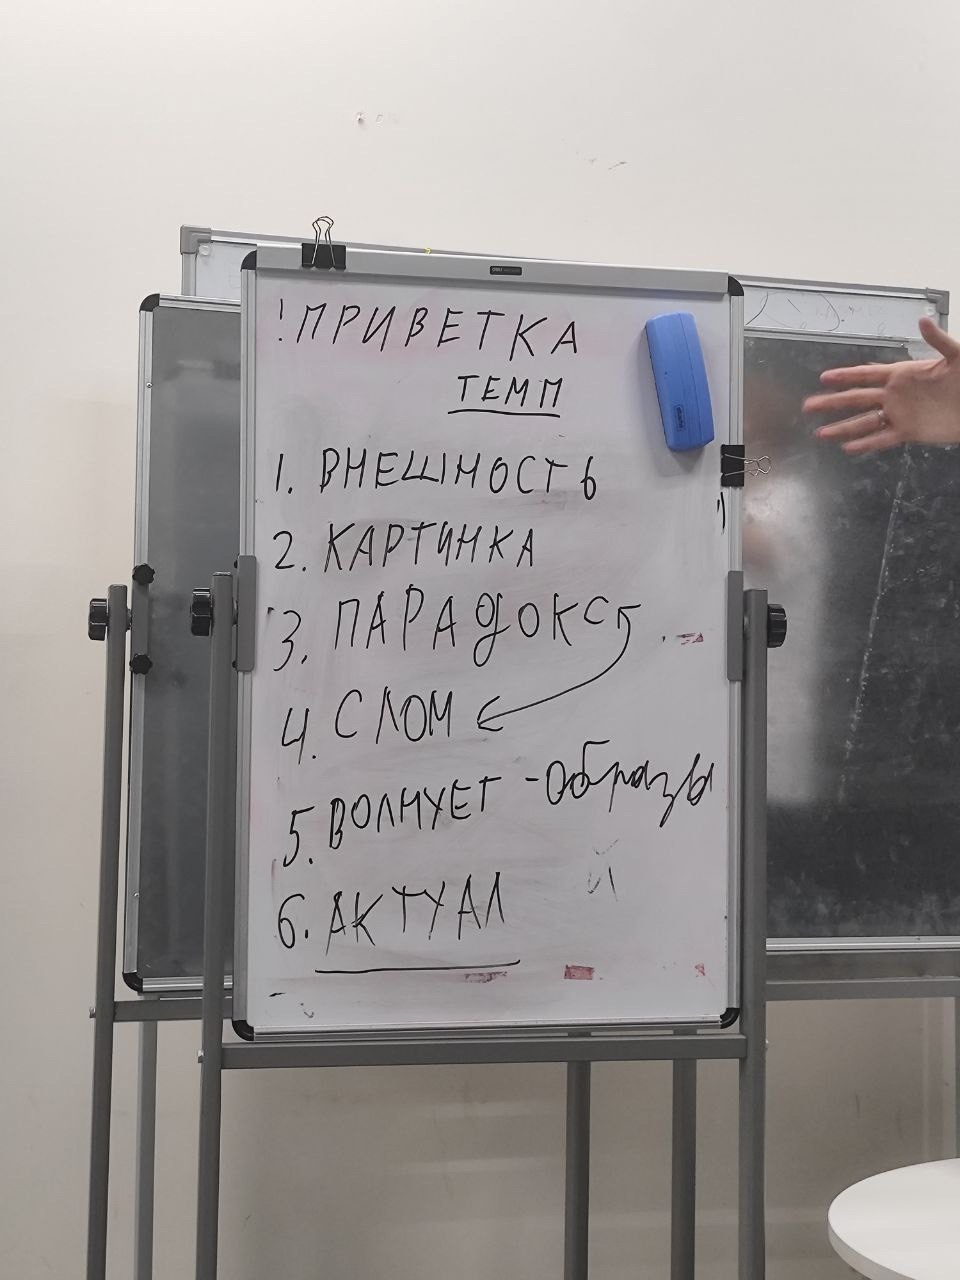 ! ПРИВЕТКА
ТЕМП
1. ВНЕШНОСТЬ
2. КАРТИНКА
3. ПАРАДОКС
4. СЛОМ
5. ВОЛНУЕТ - Образы
6. АКТУАЛ